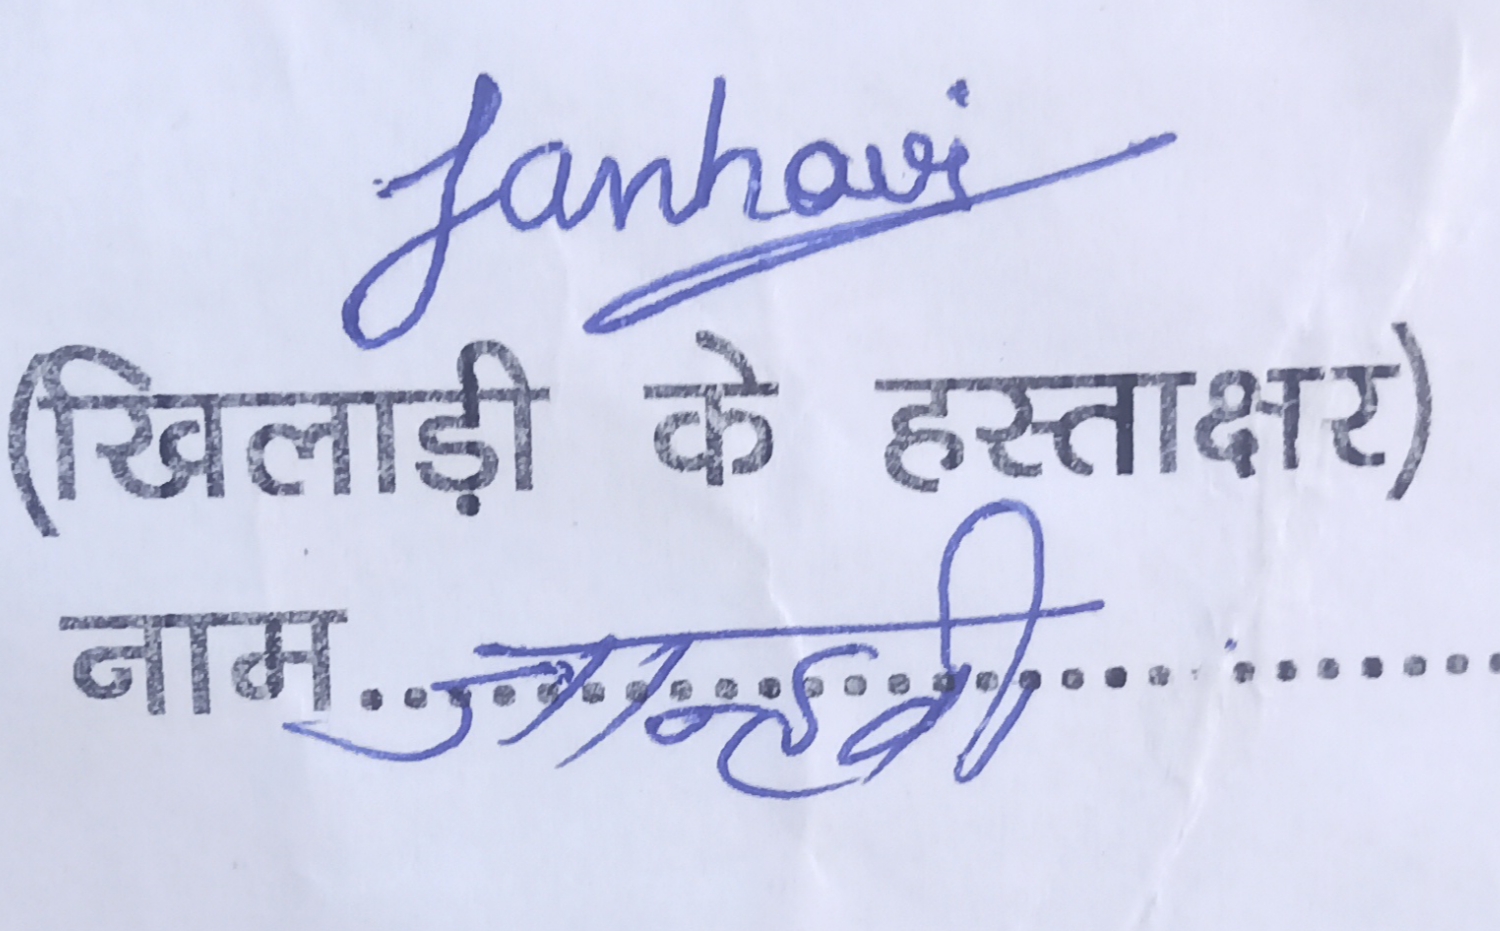 Janhavi
(खिलाड़ी के हस्ताक्षर)
नाम..जान्हवी...............